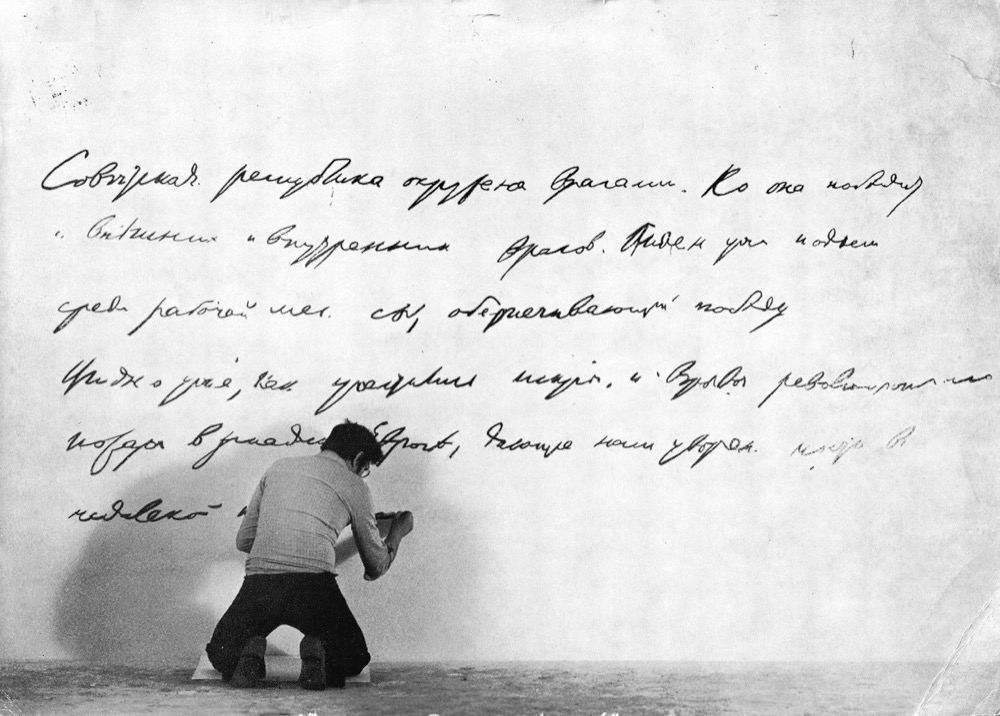 Советская республика окружена врагами. Но она победит
и внешних и внутренних врагов. Виден уже подъем
среди рабочей мас. сы, обеспечивающий победу
Видно уже, как участились искры и взрывы революционного
пожара в Западной Европе, дающие нам уверен. ность в
недалекой